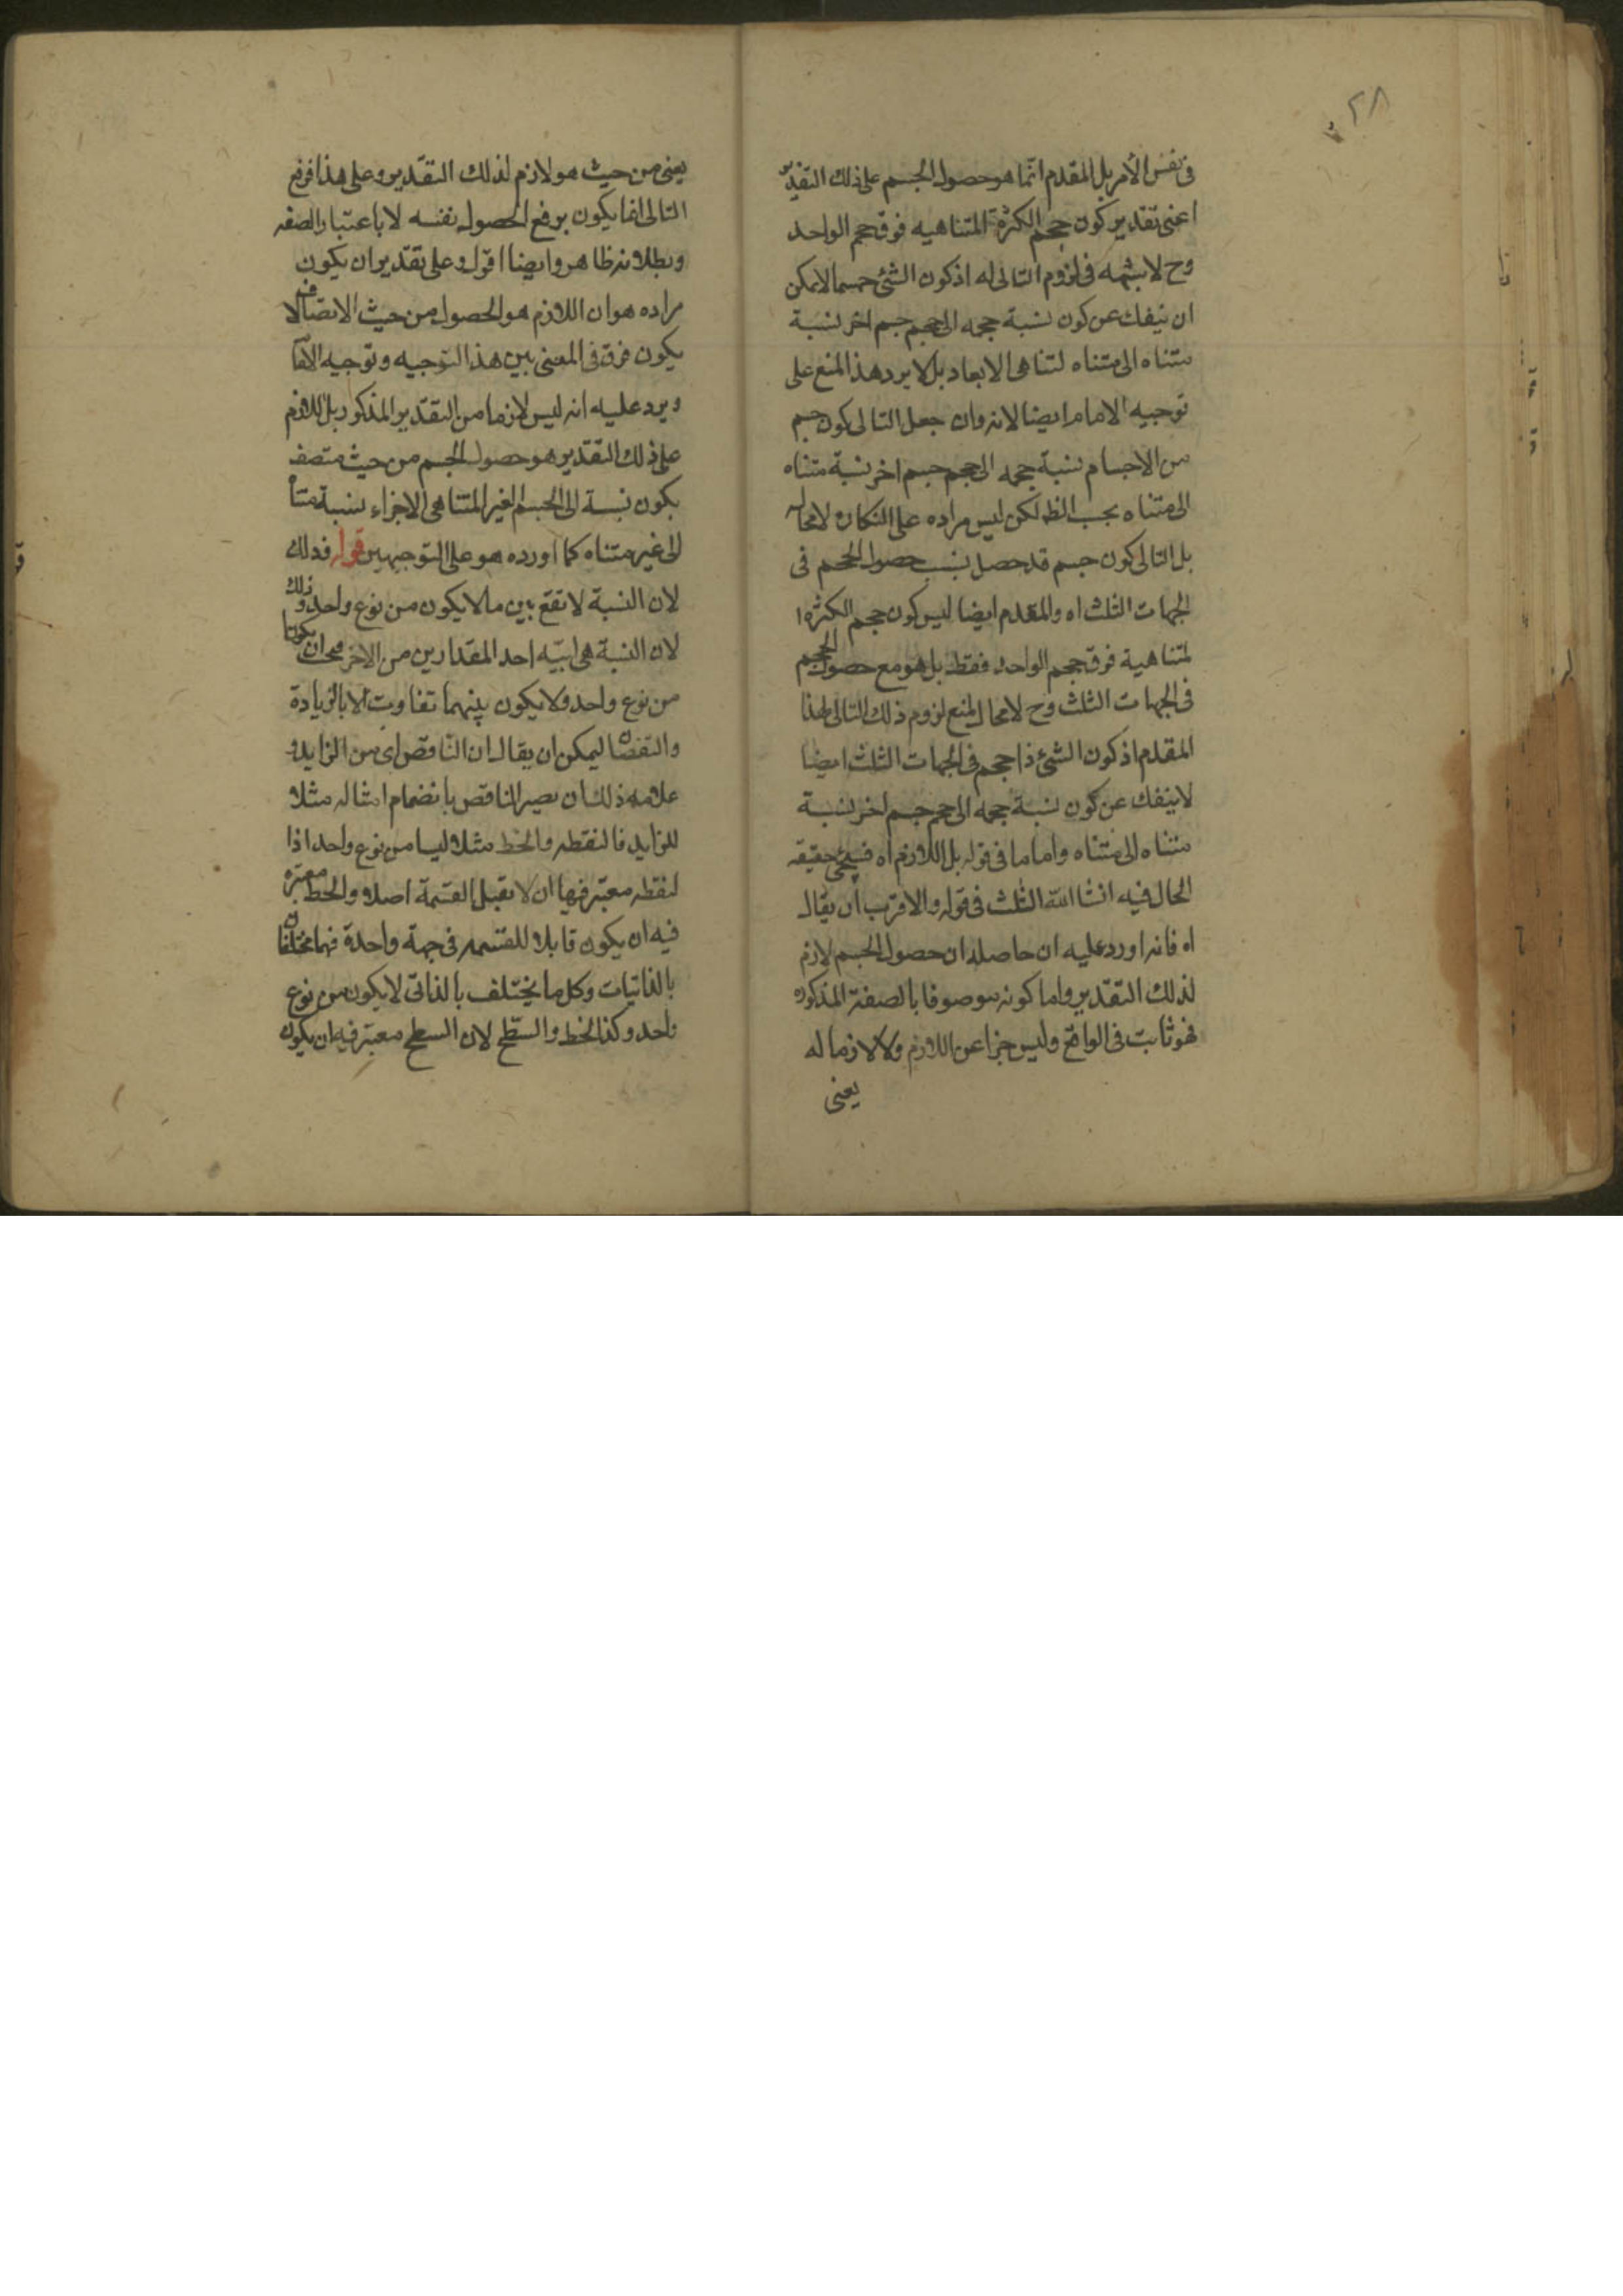 ٢٨
في نفس الأمر بل المقدم انما هو حصول الجسم على ذلك التقدير
اعنى تقدير كون حجم الكثرة المتناهيه فوق حجم الواحد
وح لا شبهه في لزوم التالى له اذ كون الشئ جسما لا يمكن
ان ينفك عن كون نسبة حجمه الى حجم جسم اخر نسبة
متناه الى متناه لتناهى الابعاد بل لا يرد هذا المنع على
توجيه الامام ايضا لانه وان جعل التالى كون جسم
من الاجسام نسبة حجمه الى حجم جسم اخر نسبة متناه
الى متناه بحسب الظ لكن ليس مراده على النكارة لا محاله
بل التالى كون جسم قد حصل بسبب حصول الحجم فى
الجهات الثلث اه والمقدم ايضا ليس كون حجم الكثرة ا
لمتناهية فوق حجم الواحد فقط بل هو مع حصول الحجم
فى الجهات الثلث وح لا مجال لمنع لزوم ذلك التالى لهذا
المقدم اذ كون الشئ ذا حجم فى الجهات الثلث ايضا
لا ينفك عن كون نسبة حجمه الى حجم جسم اخر نسبة
متناه الى متناه واما ما فى قوله بل اللازم اه فسيجئ حقيقه
الحال فيه انشا الله الثلث فى قوله والاقرب ان يقال
اه فانه اورد عليه ان حاصله ان حصول الجسم لازم
لذلك التقدير واما كونه موصوفا بالصفة المذكوره
فهو ثابت فى الواقع وليس جزا عن اللازم ولا لازما له
يعنى
يعنى من حيث هو لازم لذلك التقدير وعلى هذا فرفع
التالى انما يكون برفع الحصول نفسه لا باعتبار الصفه
وبطلانه ظاهر وايضا اقول وعلى تقدير ان يكون
مراده هو ان اللازم هو الحصول من حيث الاتصاف لا
يكون فرق فى المعنى بين هذا التوجيه وتوجيه الامام
ويرد عليه انه ليس لازما من التقدير المذكور بل اللازم
على ذلك التقدير هو حصول الجسم من حيث متصف
بكون نسبة الى الجسم الغير المتناهى الاجزاء نسبة متناه
الى غير متناه كما اورده هو على التوجيهين قوله فذلك
لان النسبة لا تقع بين ما لا يكون من نوع واحد وذلك
لان النسبة هى ايية احد المقدارين من الاخر فيجب ان يكونا
من نوع واحد ولا يكون بينهما تفاوت الا بالزيادة
والنقصان ليمكن ان يقال ان الناقص اى من الزايد و
علامه ذلك ان يصير الناقص بانضمام امثاله مثلا
للزايد فالنقطه والخط مثلا ليسا من نوع واحد اذا
لنقطه معتبر فيها ان لا تقبل القسمة اصلا والخط معتبره
فيه ان يكون قابلا للقسمه فى جهة واحدة فهما مختلفان
بالذاتيات وكل ما يختلف بالذاتى لا يكون من نوع
واحد وكذا الخط والسطح لان السطح معتبر فيه ان يكون